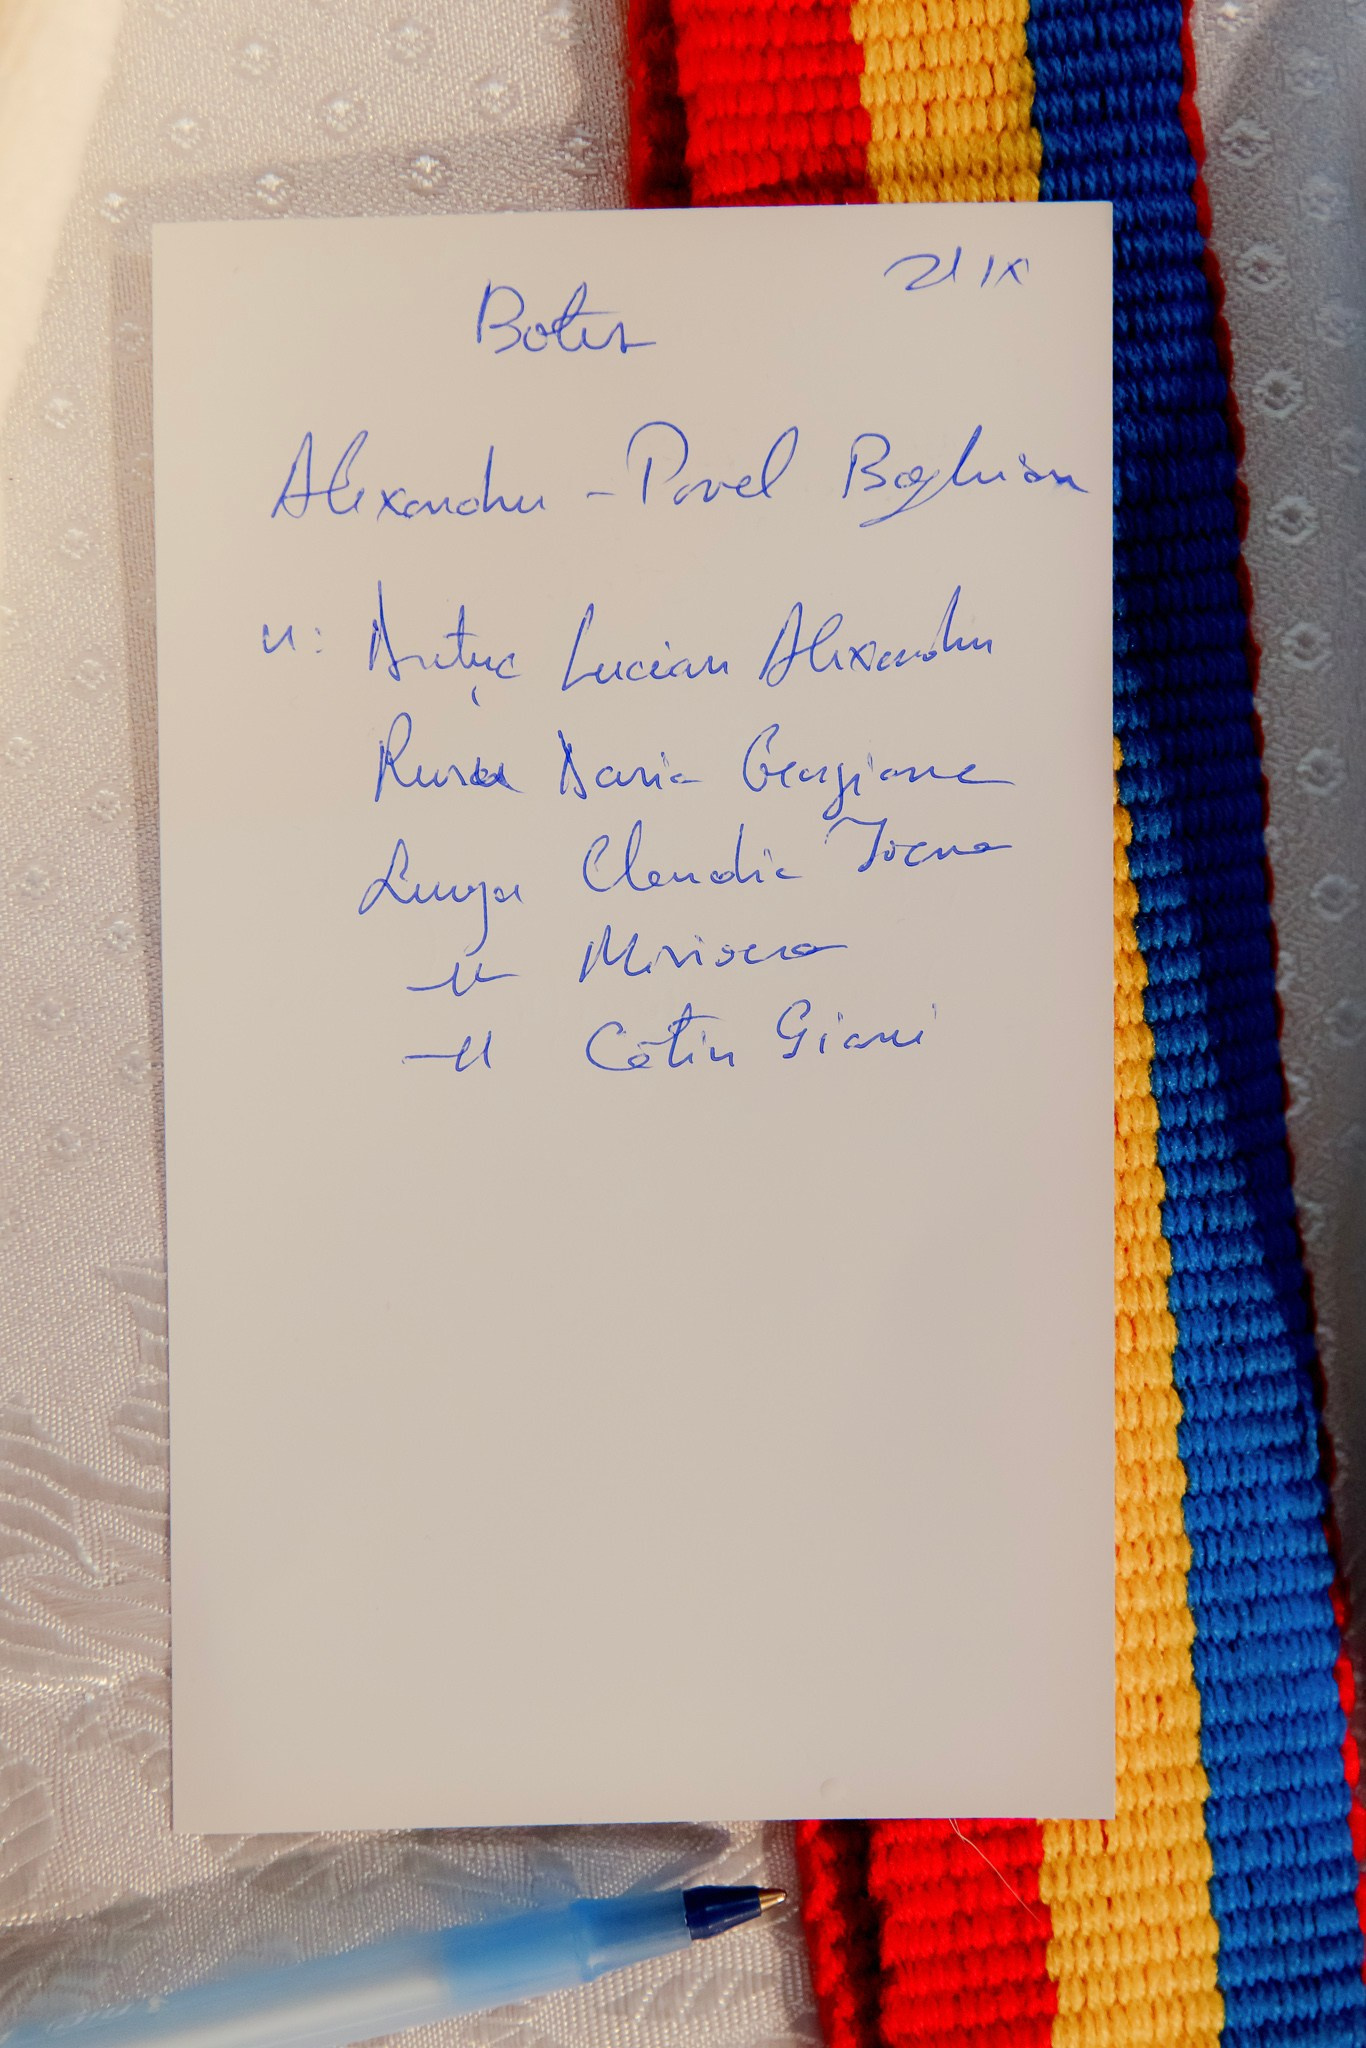 21 IX
Botez
Alexandru - Pavel Boghian
n: Lucian Alexandru
Daria Georgiana
Lunga Claudia Ioana
-"- Mirisera
-"- Cătin Giani